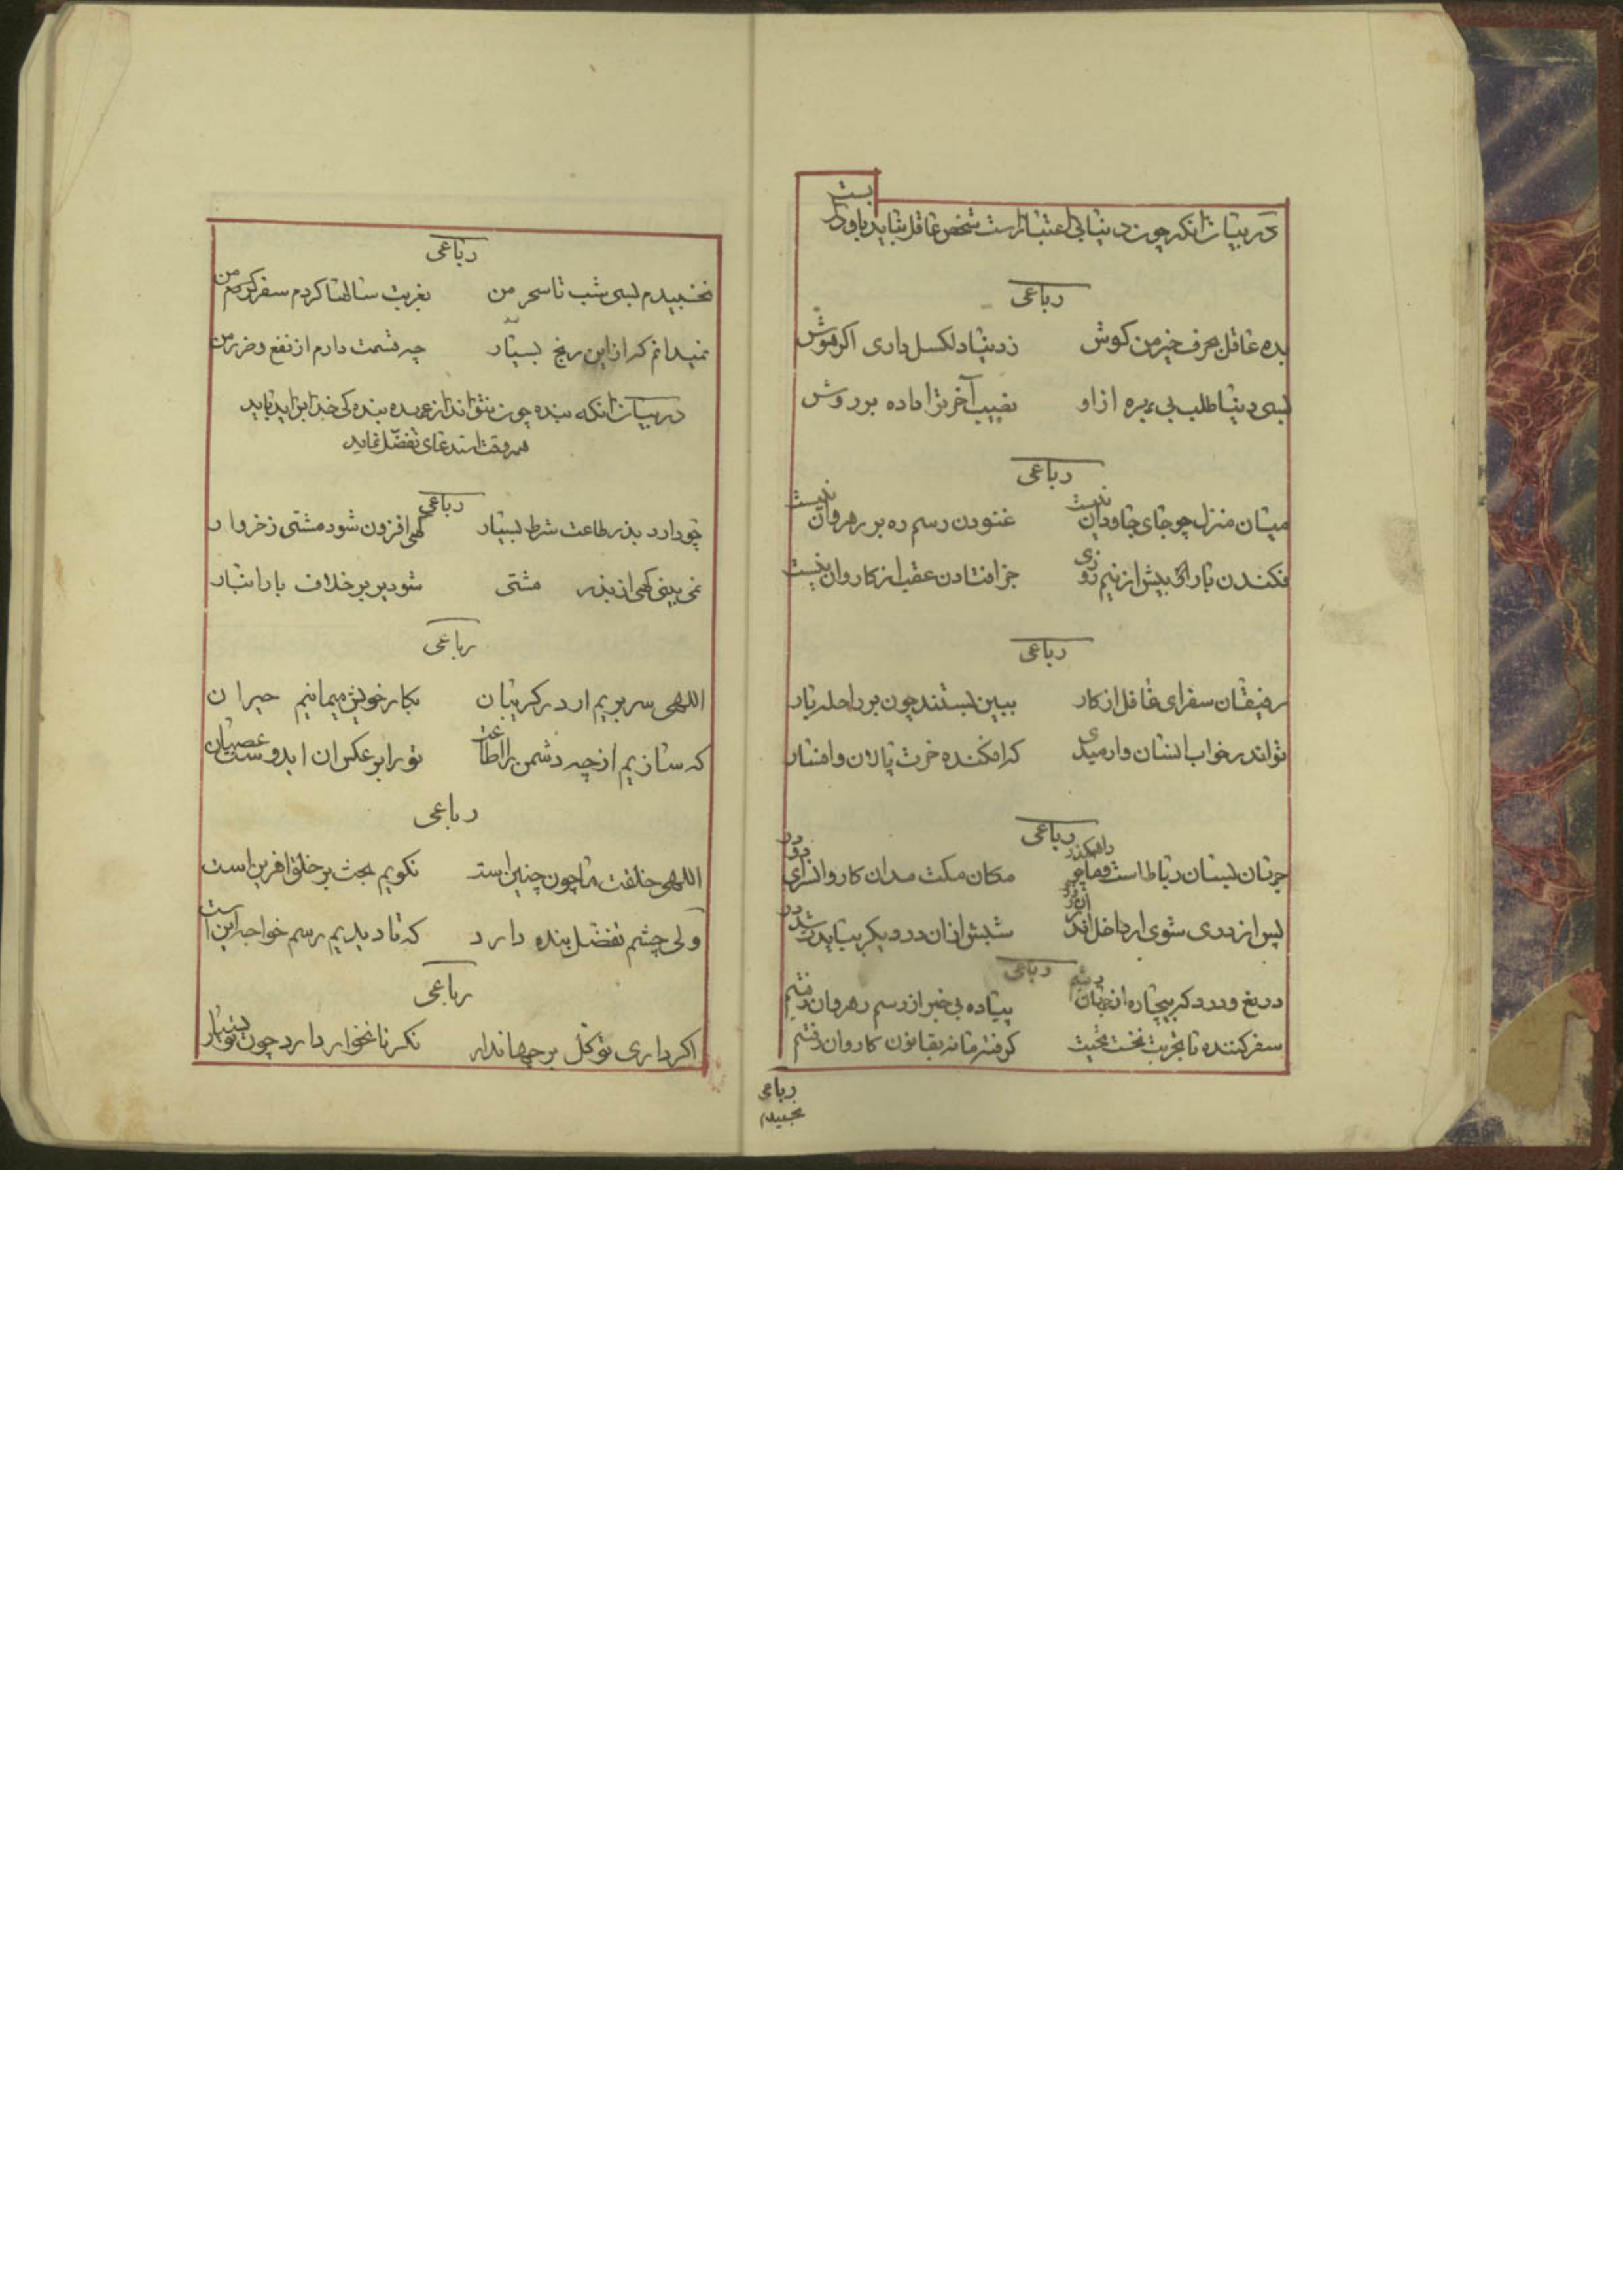 در بیان آنکه چون دنیا بی اعتبار است شخص عاقل نباید باو دل بست
رباعی
بده عاقل بحرف خیر من گوش زدنیا دلکسل داری اگر هوش
بسی دنیا طلب بی بهره از او نصیب آخر ترا داده بر دوش
رباعی
میان منزل چو جای جاودان نیست غنودن رسم ره بر رهروان نیست
فکندن بار الی بیش از نیم روزی جز افتادن عقب از کاروان نیست
رباعی
رفیقان سفر ای غافل از کار ببین بستند چون بر راحله بار
تو اندر خواب انسان وارمیدی که افکنده خرت پالان و افسار
رباعی
جهان بستان رباط است و ما چو راهگذر مکان مکث مدان کاروانسرای دو در
پس از دری شوی ار داخل اندر آن شبش از آن در دیگر ببایدت شد در
رباعی
دریغ و درد که بیچاره از جهان رفتیم پیاده بی خبر از رسم رهروان رفتیم
سفر کننده تا بغربت نخست گرفته مانه بقانون کاروان رفتیم
رباعی
نخسبیدم
رباعی
نخسبیدم بسی شب تا سحر من بغربت سالها کردم سفر من
نمیدانم که از این رنج بسیار چه قسمت دارم از نفع و ضرر من
در بیان آنکه بنده چون نتواند از عهده بنده کی خدا براید باید
همه وقت استدعای تفضّل نماید
رباعی
چو دارد بذر طاعت شرط بسیار کهی افزون شود مشتی زخروار
نمی بینی کهی از بذر مشتی شود بر بر خلاف بار انبار
رباعی
اللهی سر بریم ار در گریبان بکار خویش میمانیم حیران
که سازیم از چه دشمن را اطاعت تو را بر عکس ان ایدوست عصیان
رباعی
اللهی خلقت ما چون چنین است نگویم بحث بر خلق آفرین است
ولی چشم تفضّل بنده دارد که تا دیدیم رسم خواجه این است
رباعی
اگر داری توکّل بر جهاندار مگر نانخوار دارد چون تو بسیار